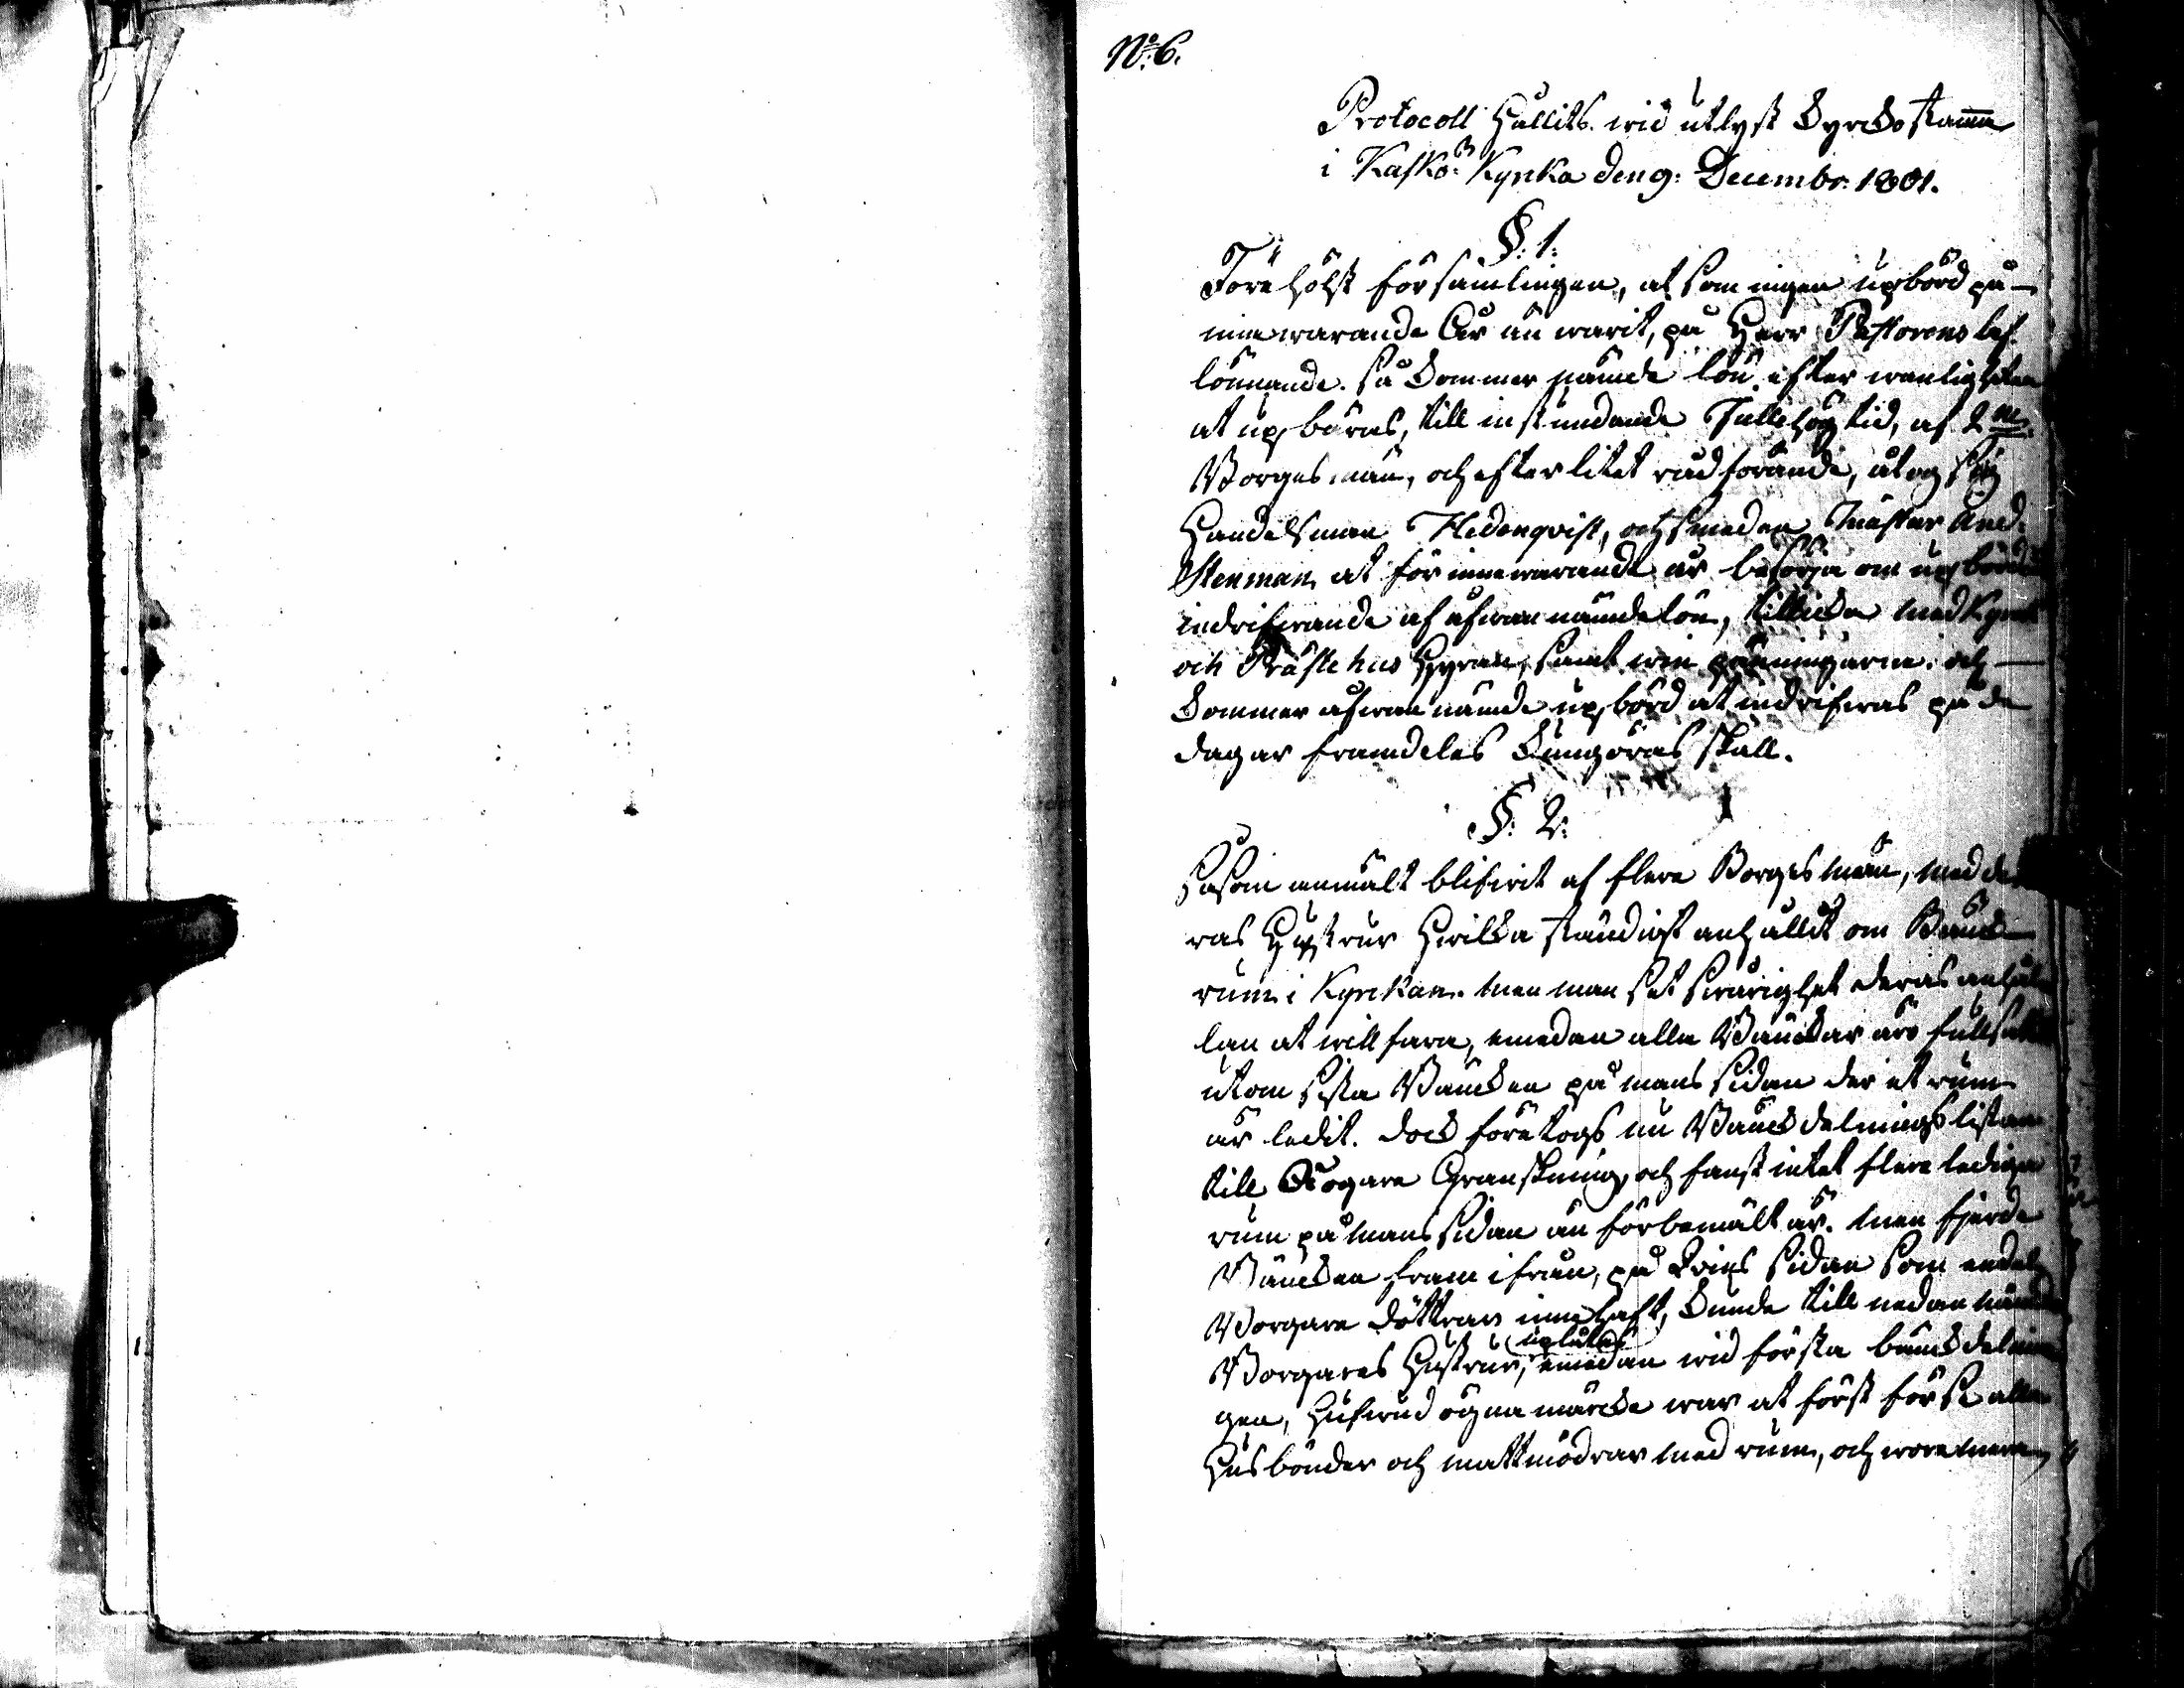 No: 6.
Protocoll Hållits wid utlyst Kyrckostämma
i Kaskö Kyrcka den 9: Decembr: 1801.
§: 1:
Före hölst församlingen, at som ingen upbörd på
innewarande Åhr än warit, på Herr Pastorens lef-
lönnande. så kommer nämde lön, efter wanligheten
at upbäras, till instundande Jullehögtid, af 2ne
Borgesmän, och efter litet rådförande, åtog sig
Handelsman Hedenqvist, och smeden Mäster And:
Stenman, at för innewarande år besörja om upbörd
indrifwande af ofwannämde lön, tillicka med Kyrck
och Prästehus Hyran, samt win pänningarne. och
Kommer ofwannämde upbörd at indrifwas på de
dagar framdeles kungöras skall.
§: 2:
Såsom anmält blifwit af flere Borgesmän, med de
ras Hustrur Hwilka ständigt anhållit om Bänck
rum i Kyrckan. men man set swårighet deras anhål
lan at willfara, emedan alla Bänckar äro fullsatte
utom sista Bäncken på mans sidan der et rum
är ledit. dock företogs nu Bänckdelnings listan
till Nogare Granskning, och fanst intet flere lediga
rum på mans sidan än förbemält är. men fjerde
Bäncken fram ifrån, på Qvins sidan som endels
Borgare döttrar innehaft, kunde till nedannämde
Borgares Hustrur, uplåtas emedan wid första bänckdelnin
gen, Hufwud ögnamärcke war at först förse alla
Husbönder och mattmödrar med rum, och wore men